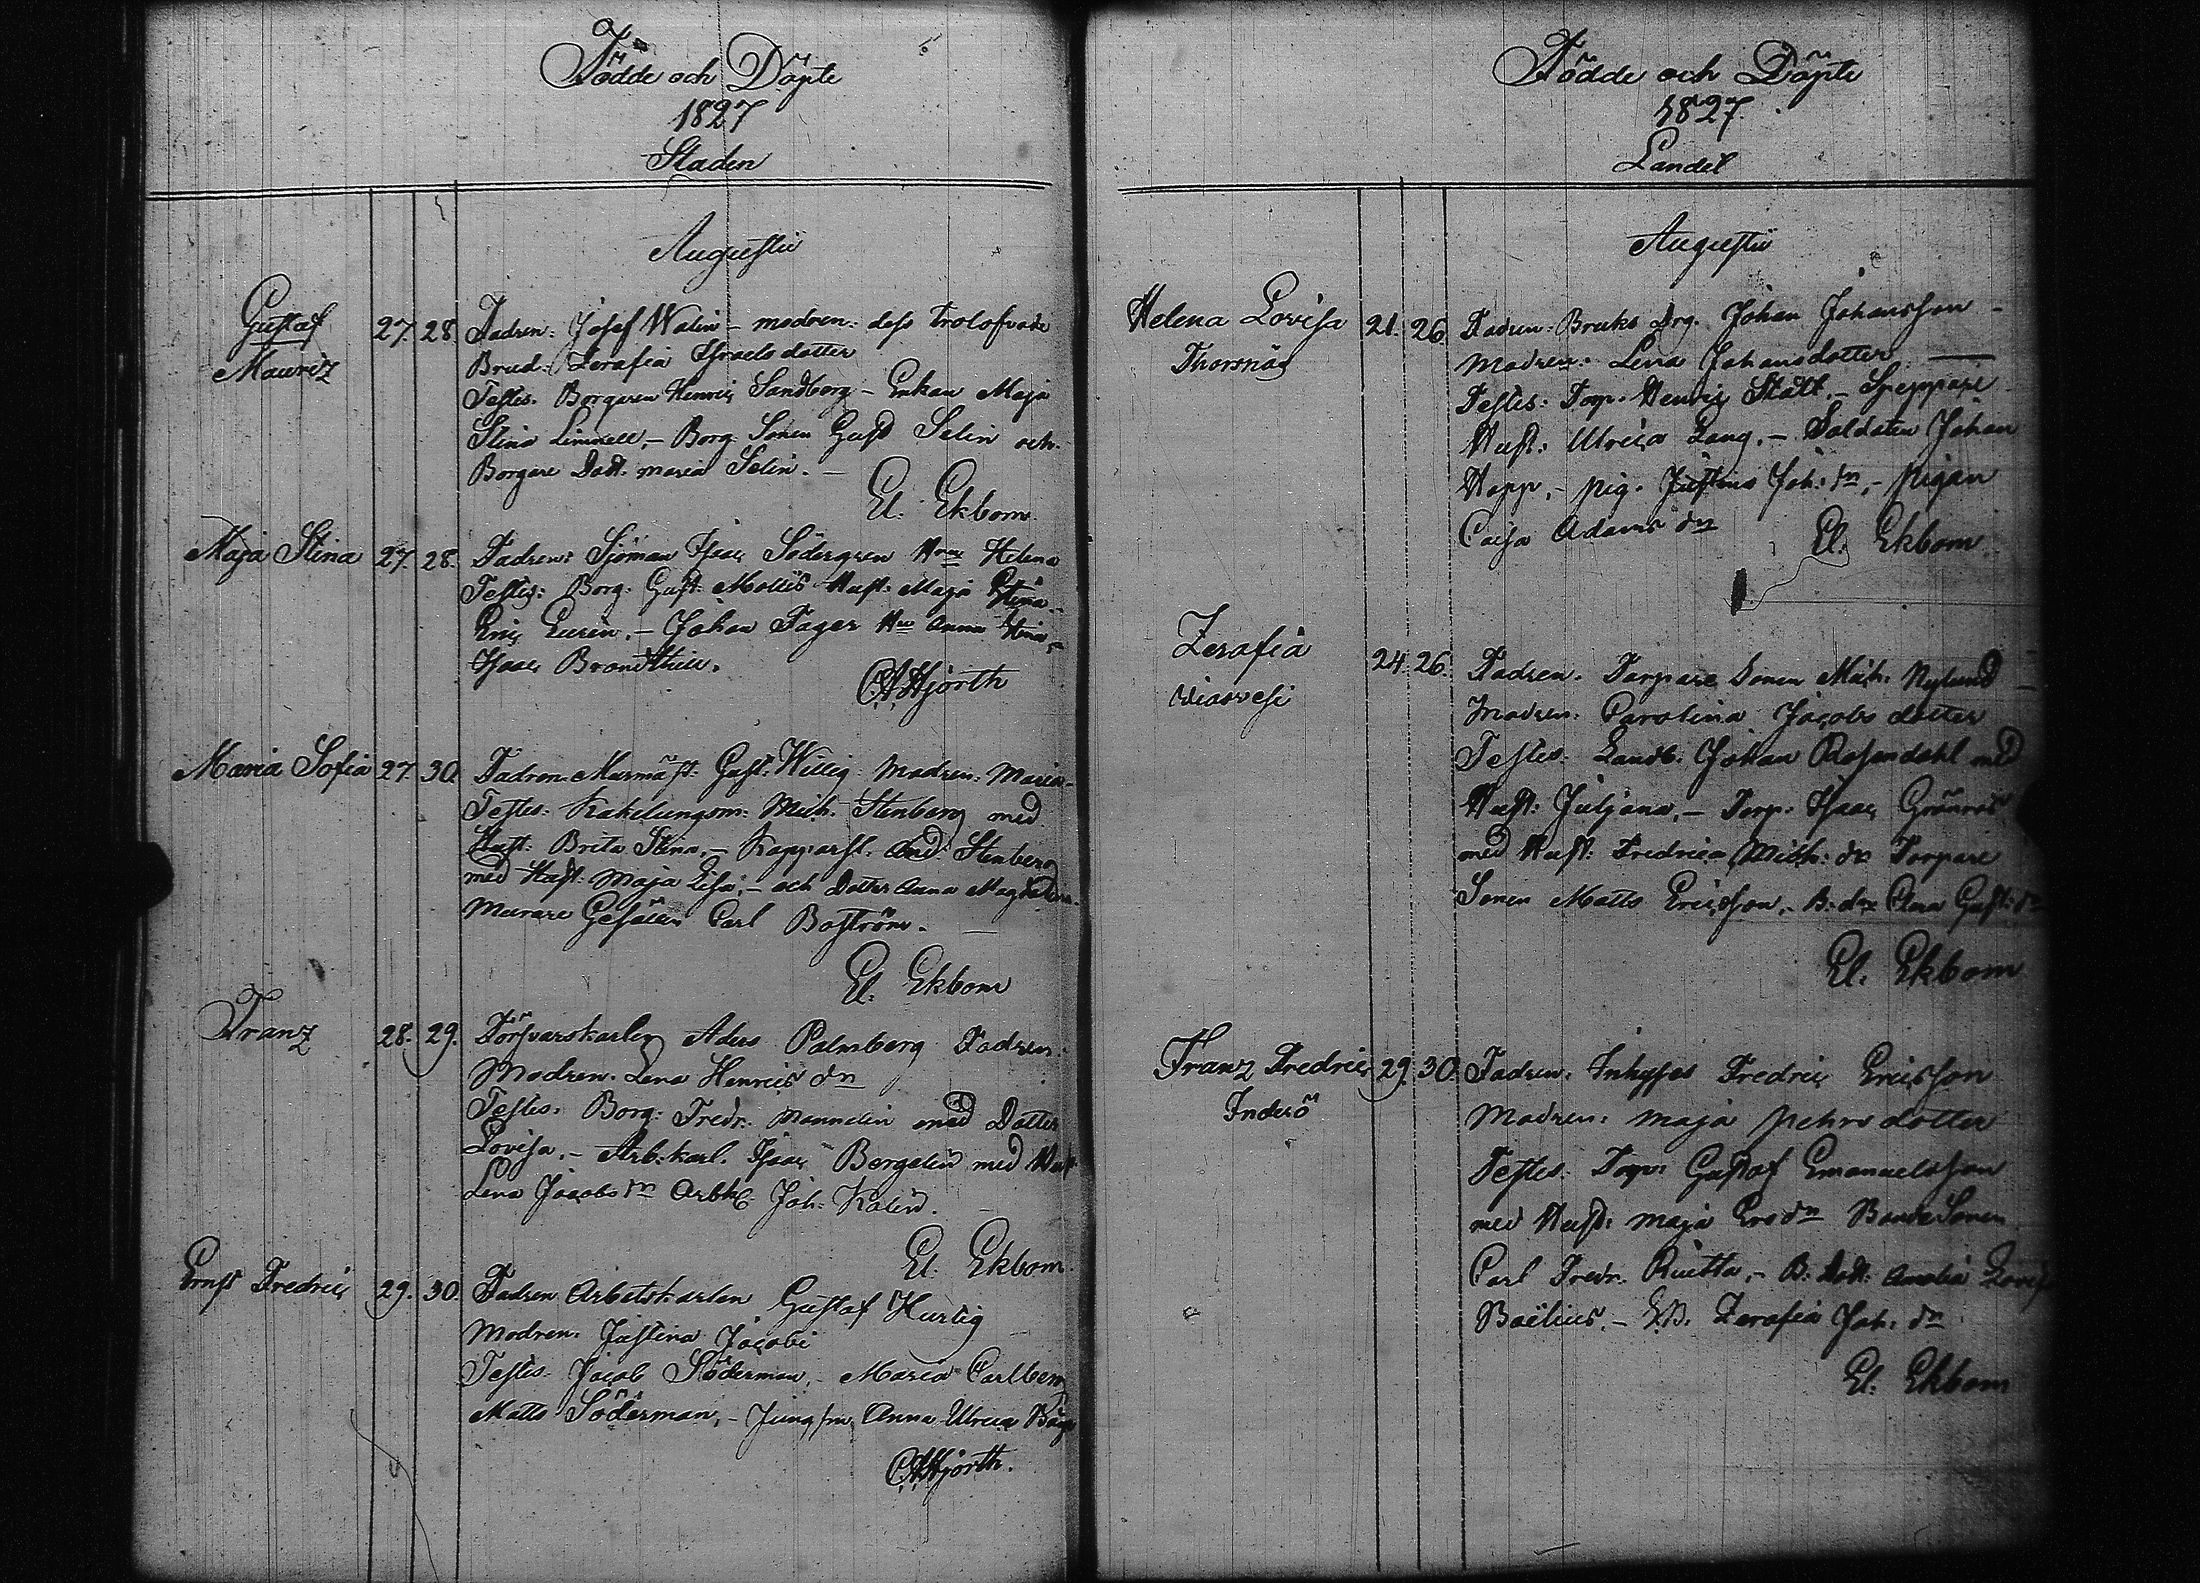 Födde och Döpte
1827
Staden
Augusti
Gustaf
Mauritz
27. 28.
Fadren: Josef Walin – modren: dess trolofvade
Brud. Serafia Israelsdotter
Testes. Borgaren Henric Sandberg – Enkan Maja
Stina Limnell, – Borg. Sonen Gust Selin och
Borgare Dott. maria Selin. –
El. Ekbom
Maja Stina 27. 28.
Fadren: Sjöman Isaac Södergren Hru Helena
Testes: Borg: Gust: Mollis Hust: Maja Stina –
Eric Eurén. – Johan Fager Hru Anna Stina –
Isaac Brandthill.
C.A. Hjorth
Maria Sofia 27. 30.
Fadren. Murmäst: Gust: Willig Modren: Maria –
Testes. Kakelungsm: Mich. Stenberg med
Hust. Brita Stina, – Kopparsl. And: Stenberg
med Hust. Maja Lisa, – och Dotter Anna Magdalena
Murare Gesällen Carl Boström. –
El. Ekbom
Franz 28. 29.
Försvarskarlen Aders Palmberg Fadren.
Modren. Lena Henrics dn
Testes. Borg: Fredr. Mannelin med Dotter
Lovisa. – Arb:karl. Isaac Bergelin med Hust
Lena Jacobs dn Arbk: Joh: Kalin.
El. Ekbom
Ernst Fredric 29. 30.
Fadren Arbetskarlen Gustaf Hurtig
Modren. Justina Jacobi
Testes. Jacob Söderman, – Maria Carlberg
Matts Söderman, – Jungfru Anna Ulrica
C.A. Hjorth.
Födde och Döpte
1827.
Landet
Augusti
Helena Lovisa
Thorsnäs
21. 26.
Fadren: Bruks Drg. Johan Johansson –
Modren: Lena Johansdotter –
Testes: Torp. Henric Stält. – Skeppare
Hust: Ulrica Lang. – Soldaten Johan
Hopp, – pig. Justina Joh: dn, – pigan
Caisa Adams dn
El. Ekbom
Serafia
Viasvesi
24. 26.
Fadren. Torpare Sonen Mich. Nylund –
Modren. Carolina Jacobs dotter
Testes. Landb. Johan Rosendahl med
Hust: Juljana, – Torp: Isaac Grönroos
med Hust: Fredrica Mich: dn Torpare
Sonen Matts Ericsson, – B: dn Clara Gust: dn
El. Ekbom
Franz Fredric
Inderö
29. 30.
Fadren. Inhyses Fredric Ericsson
Modren: Maja Pehrs dotter
Testes. Torp: Gustaf Emanuelsson
med Hust: Maja Ersdn Bonde Sonen
Carl Fredr. Ruitta, – B: Dott: Amalia Lovisa
Boëlius. – Serafia Joh: dn
El. Ekbom